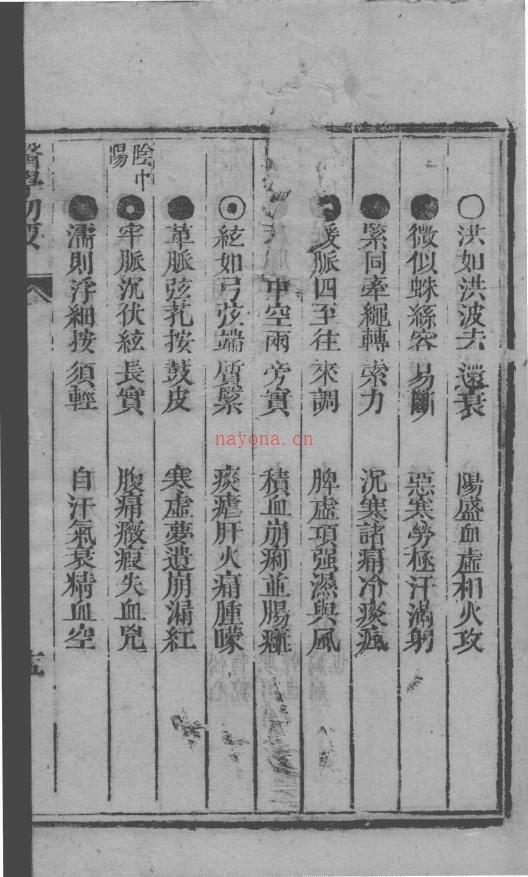 洪如洪波去還衰 陽盛血虛相火攻
微似蛛絲容易斷 惡寒勞極汗滿躬
緊同牽繩轉索力 沉寒諸痛冷痰瘋
緩脈四至往來調 脾虛項强濕與風
中空兩旁實 積血崩痢並腸癰
絃如弓弦端質緊 痰瘧肝火痛腫曚
革脈弦芤按鼓皮 寒虛夢遺崩漏紅
陰中陽
牢脈沉伏絃長實 腹痛癥瘕失血兇
濡則浮細按須輕 自汗氣衰精血空
醫學初
五
nayona.cn